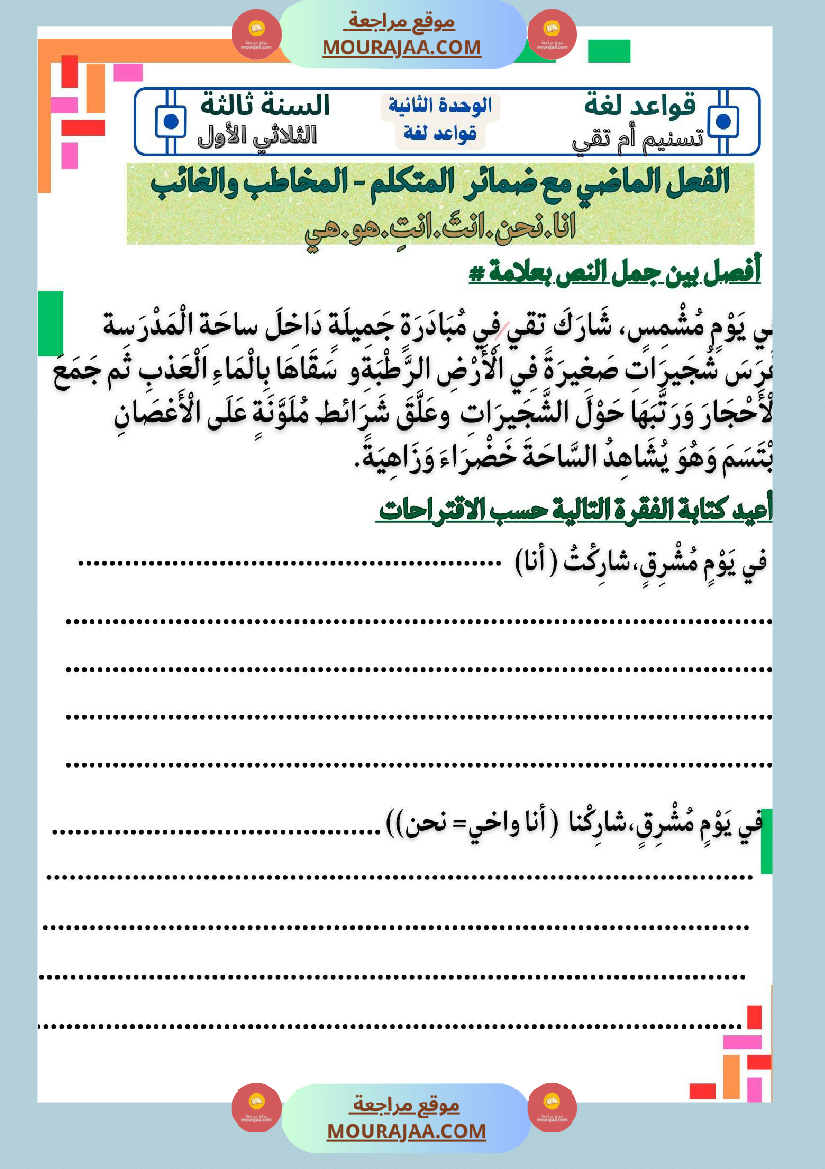 موقع مراجعة
MOURAJAA.COM
قواعد لغة
تسنيم أم تقي
الوحدة الثانية
قواعد لغة
السنة ثالثة
الثلاثي الأول
الفعل الماضي مع ضمائر المتكلم - المخاطب والغائب
انا.نحن.انتَ.انتِ.هو.هي
أفصل بين جمل النص بعلامة #
في يَوْمٍ مُشْمِسٍ، شَارَكَ تقي فِي مُبَادَرَةٍ جَمِيلَةٍ دَاخِلَ ساحَة الْمَدْرَسِة
غَرَسَ شُجَيرَات صَغيرَةً فِي الْأَرْضِ الرَّطْبَةِو سَقَاهَا بِالْمَاءِ الْعَذبِ ثُم جَمَعَ
الْأَحْجَارَ وَرَتَّبَهَا حَوْلَ الشَّجَيرَاتِ وعَلَّقَ شَرَائط مُلَوَّنَةٍ عَلَى الْأَغصَانِ
ابْتَسَمَ وَهُوَ يُشَاهِدُ السَّاحَةَ خَضْرَاءَ وَزَاهِيَةً.
أعيد كتابة الفقرة التالية حسب الاقتراحات
في يَوْمٍ مُشْرِقٍ،شارِكْتُ (أنا) ......................................................
في يَوْمٍ مُشْرِقٍ،شارِكْنا (أنا واخي= نحن)) ..........................................
موقع مراجعة
MOURAJAA.COM